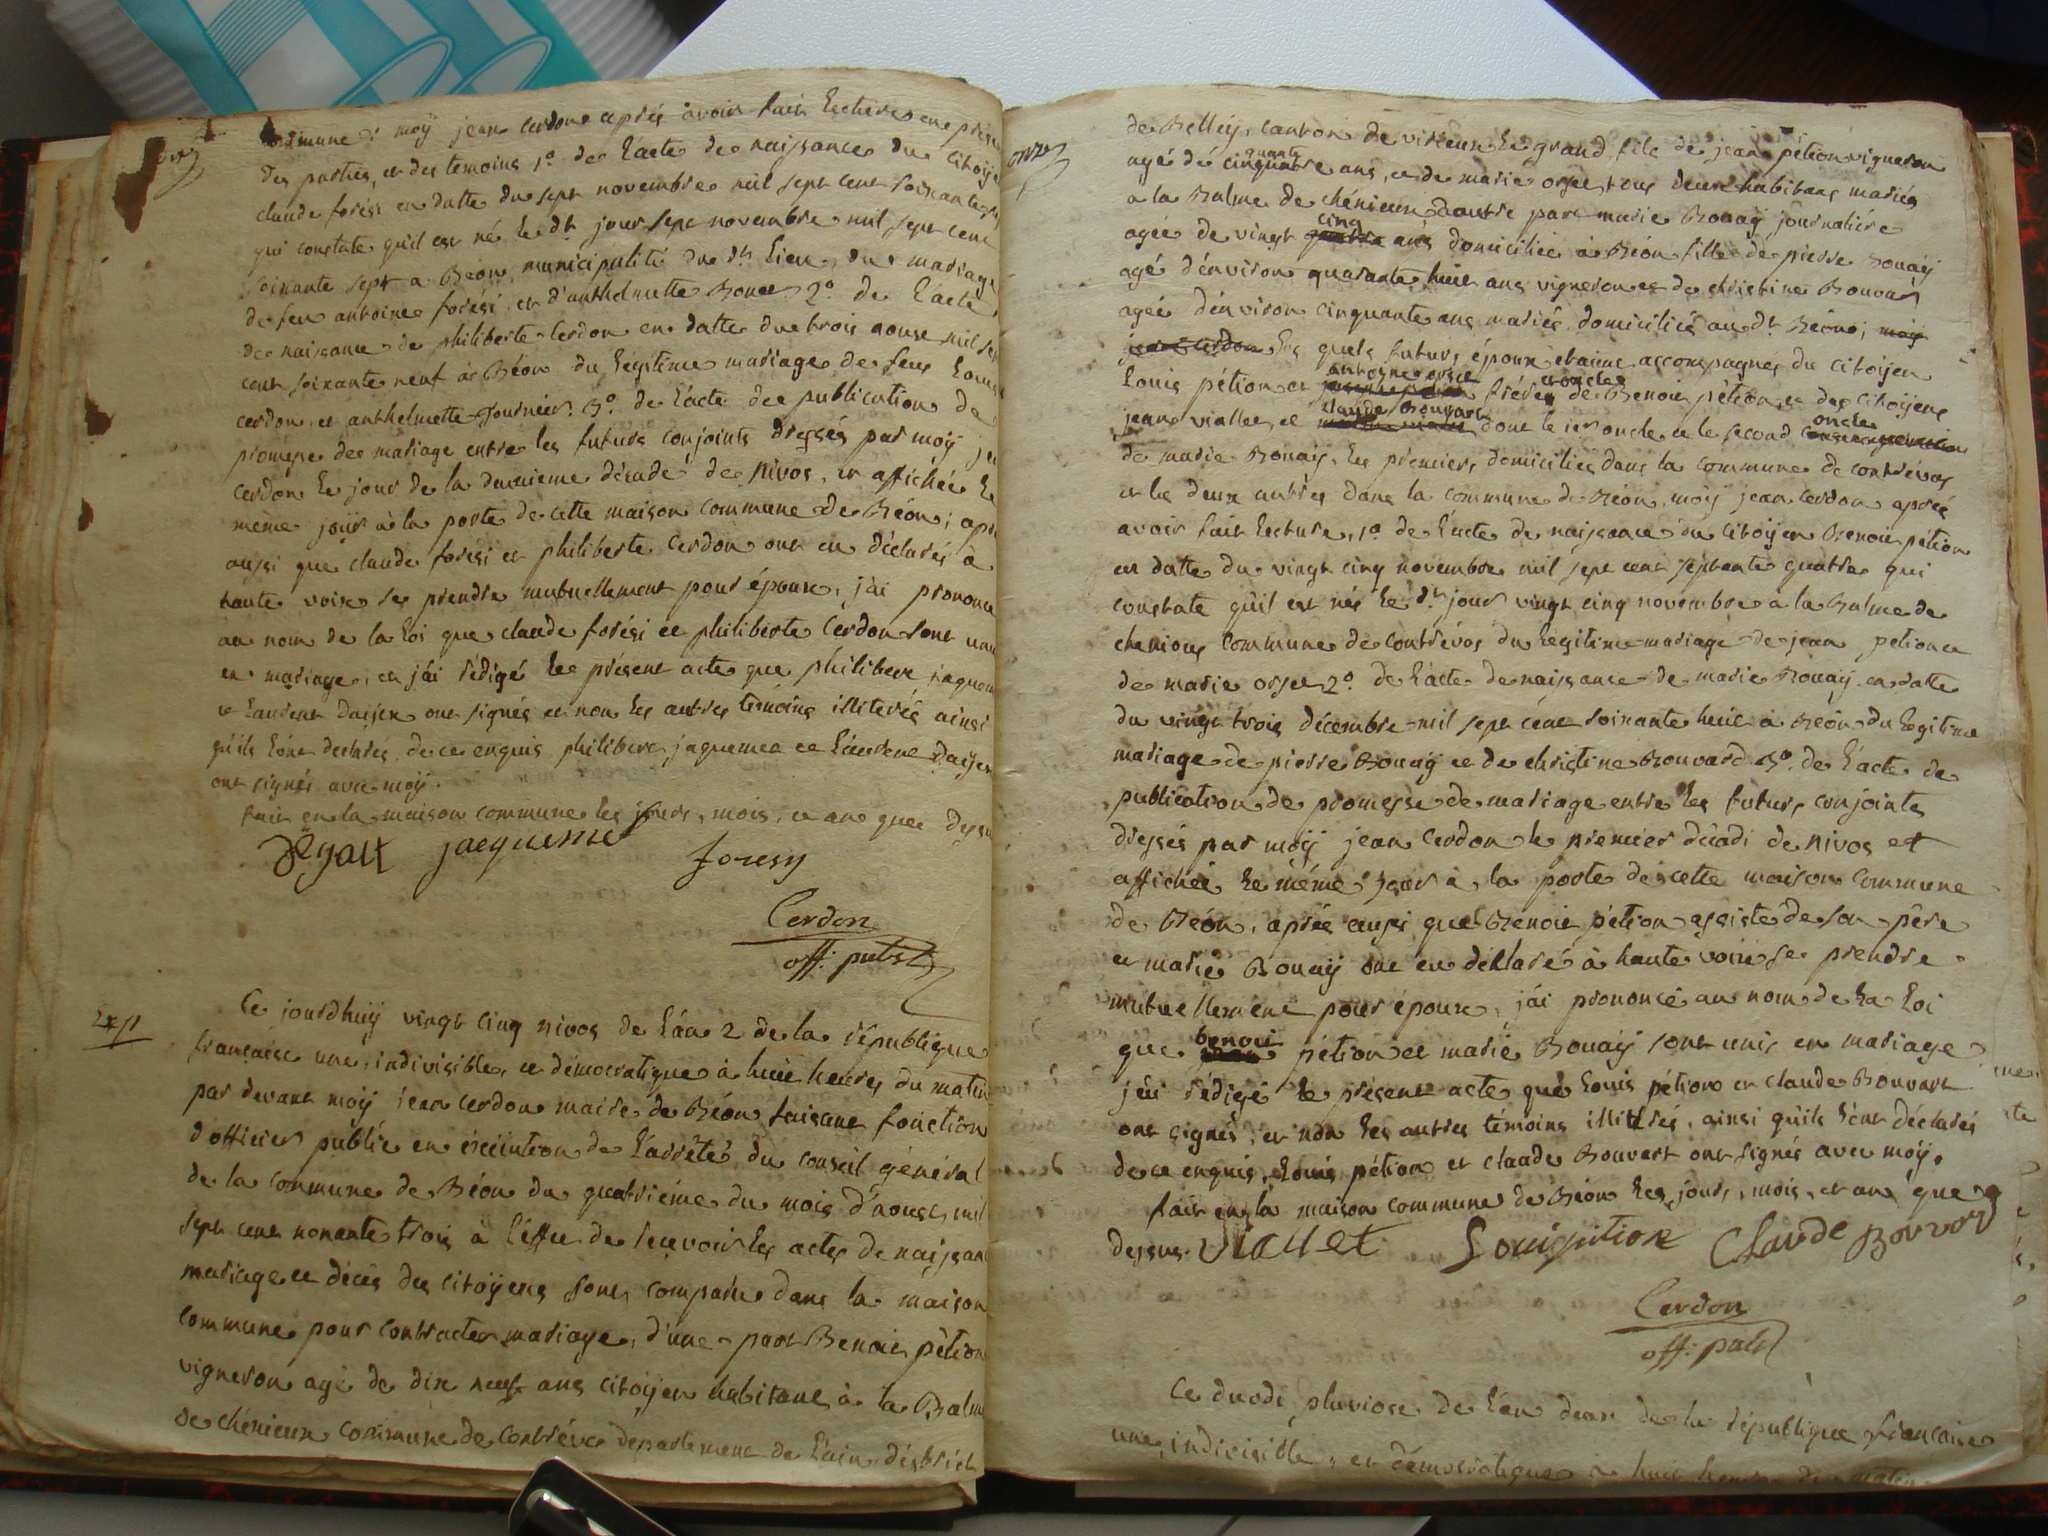 moÿ jean cerdon après avoir fait lecture en prese
des parties, et des temoins 1º de l'acte de naissance du citoÿe
claude forési en datte du sept novembre mil sept cent soixante
qui constate qu'il est né le dt jour sept novembre mil sept cent
soixante sept a Béon municipalité du dt lieu, du mariage
de feu antoine forési et d'anthelmette Bonee 2º de l'acte
de naissance de philiberte Cerdon en datte du trois aoust mil se
cent soixante neuf à Béon du légitime mariage de feus Louis
cerdon et anthelmette fournier 3º de l'acte de publication de
promesse de mariage entre les futurs conjoints dressés par moÿ je
cerdon le jour de la deuxieme décade de nivos, et affichée le
même jour à la porte de cette maison commune de Béon; apr
aussi que claude forési et philiberte Cerdon ont eu déclarés à
haute voix se prendre mutuellement pour époux, j'ai prononcé
au nom de la loi que claude forési et philiberte Cerdon sont uni
en mariage, et j'ai rédigé le présent acte que philibert jaquem
et laurent dayer ont signés et non les autres témoins illiterés ainsi
qu'ils l'ont declarés de ce enquis philibert jaquemea et laurent dayer
ont signés avec moÿ.
fait en la maison commune les jours, mois, et an que dessu
jacqueme foresy
Cerdon
off: publ
Ce jourdhuÿ vingt cinq nivos de l'an 2 de la république
française une, indivisible, et démocratique à huit heures du matin
par devant moÿ jean cerdon maire de Béon faisant fonction
d'officier public en exécution de l'arrêté du conseil général
de la commune de Béon du quatrième du mois d'aoust mil
sept cent nonante trois à l'effet de recevoir les actes de naissan
mariage et décès des citoÿens sont comparu dans la maison
commune pour contracter mariage, d'une part Benoit pétion
vigneron agé de dix neuf ans citoÿen habitant à la Balm
de chénieux commune de contrévo departement de l'ain, district
onze
de Belley, canton de virieux le grand fils de jean pétion vigneron
agé de cinquante ans, et de marie orset tous deux habitans mariés
a la Balme de chénieux dautre part marie Bonaÿ journalière
agée de vingt cinq ans domiciliée à Béon fille de pierre Bonaÿ
agé d'environ quarante huit ans vigneron et de christine Bouvar
agée d'environ cinquante ans mariés domiciliés au dt Béon; moÿ
jean cerdon les quels futurs époux etaint accompagnés du citoÿen
Louis pétion et antoyne orset frére et oncle de Benoit pétion et des citoÿens
jean viallet et claude Bouvart dont le 1er oncle et le second oncle
de marie Bonaÿ, les premiers domiciliés dans la commune de contrévos
et les deux autres dans la commune de Béon, moÿ jean cerdon après
avoir fait lecture, 1º de l'acte de naissance du citoÿen Benoit pétion
en datte du vingt cinq novembre mil sept cent séptente quatre qui
constate qu'il est nés le dt jour vingt cinq novembre à la Balme de
chenioux commune de contrévos du legitime mariage de jean petion et
de marie orset 2º de l'acte de naissance de marie Bonaÿ en datte
du vingt trois décembre mil sept cent soixante huit à Béon du legitime
mariage de pierre Bonaÿ et de christine Bouvard 3º de l'acte de
publication de promesse de mariage entre les futurs conjoints
dressés par moÿ jean Cerdon le premier décadi de nivos et
affichée le même jour à la porte de cette maison commune
de Béon, après aussi que Benoit pétion assisté de son pêre
et marie Bonaÿ ont eu déklaré à haute voix se prendre
mutuellement pour époux, j'ai prononcé au nom de la loi
que benoit pétion et marie Bonaÿ sont unis en mariage
j'ai rédigé le présent acte que Louis pétion et claude Bouvart
ont signés, et non les autres témoins illiterés, ainsi qu'ils l'ont déclarés
de ce enquis, Louis pétion et claude Bouvart ont signés avec moÿ.
fait en la maison commune de Béon les jours, mois, et an que
dessus. Viallet Louis pition Claude Bouvard
Cerdon
off: publ
Ce duodi pluviose de l'an deux de la république française
une, indivisible, et démocratique a huit heures du matin